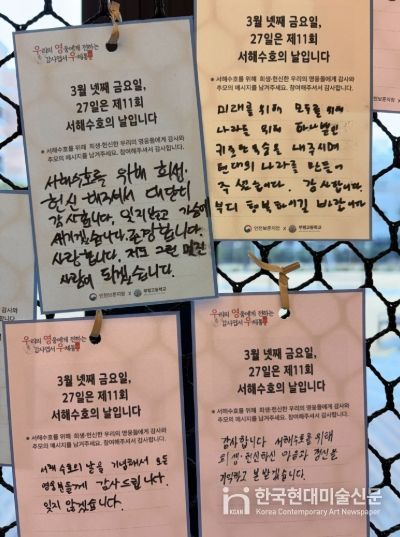 우리의 영웅에게 전하는
감사엽서 우체통
3월 넷째 금요일,
27일은 제11회
서해수호의 날입니다
※ 서해수호를 위해 희생·헌신한 우리의 영웅들에게 감사와
추모의 메시지를 남겨주세요. 참여해주셔서 감사합니다.
서해수호를 위해 희생,
헌신 해주셔서 대단히
감사합니다. 잊지않고 가슴에
새기겠습니다. 존경합니다.
사랑합니다. 저도 그런 멋진
사람이 되겠습니다.
인천보훈지청 X 부평고등학교
3월 넷째 금요일,
27일은 제11회
서해수호의 날입니다
※ 서해수호를 위해 희생·헌신한 우리의 영웅들에게 감사와
추모의 메시지를 남겨주세요. 참여해주셔서 감사합니다.
미래를 위해 모두를 위해
나라를 위해 하나뿐인
귀중한 목숨을 내주시며
현대의 나라를 만들어
주셨습니다. 감사합니다.
부디 행복하시길 바랍니다
인천보훈지청 X 부평고등학교
우리의 영웅에게 전하는
감사엽서 우체통
3월 넷째 금요일,
27일은 제11회
서해수호의 날입니다
※ 서해수호를 위해 희생·헌신한 우리의 영웅들에게 감사와
추모의 메시지를 남겨주세요. 참여해주셔서 감사합니다.
서해 수호의 날을 기념해서 모든
영웅분들께 감사드립니다.
잊지 않겠습니다.
우리의 영웅에게 전하는
감사엽서 우체통
3월 넷째 금요일,
27일은 제11회
서해수호의 날입니다
※ 서해수호를 위해 희생·헌신한 우리의 영웅들에게 감사와
추모의 메시지를 남겨주세요. 참여해주셔서 감사합니다.
감사합니다 서해수호를 위해
희생·헌신하신 마음과 정신을
기억하고 본받겠습니다.
KCAN 한국현대미술신문
Korea Contemporary Art Newspaper